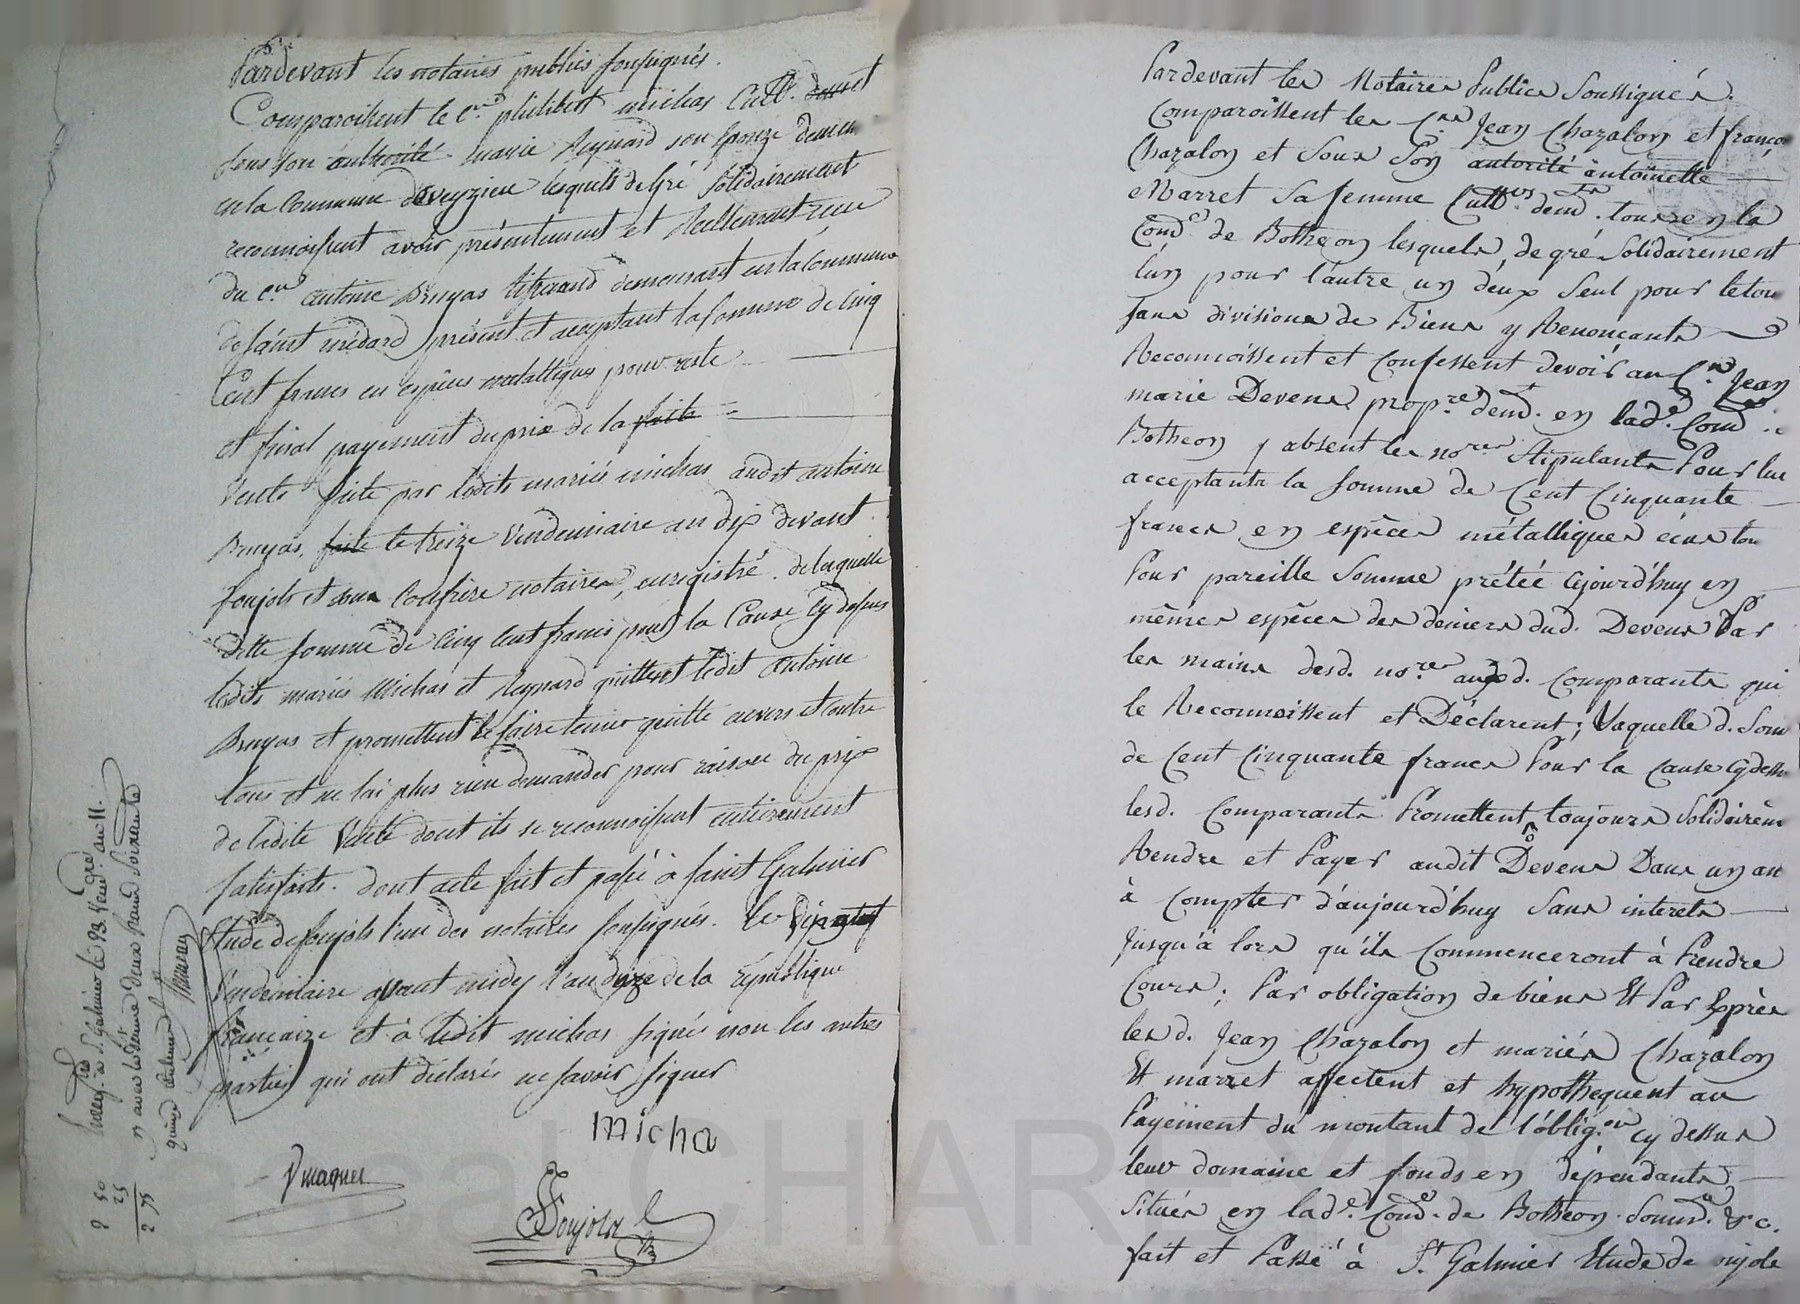 Pardevant les notaires publics soussignés.
Comparoissent le C.en philibert michas Cult. et
sous son authorité marie Reynard son épouze demeu
en la Commune daveyzieu lesquels de Gré Solidairement
reconnoissent avoir présentement et Réellement reçu
du C.en antoine Bruyas tisserand demeurant en la Commune
de saint médard présent et acceptant la somme de Cinq
Cent francs en espèces metalliques pour reste
et final payement du prix de la faite
Vente faite par lesdits mariés michas audit antoine
Bruyas, faite le treize Vendemiaire an dix devant
foujols et son Confrère notaires, enregistré. de laquelle
dette somme de Cinq Cent francs pour la Cause Cy dessus
lesdits mariés Michas et Reynard quittent ledit Antoine
Bruyas et promettent le faire tenir quitte envers et contre
tous et ne lui plus rien demander pour raison du prix
de ladite Vente dont ils se reconnoissent entièrement
satisfaits. dont acte fait et passé à saint Galmier
Etude de foujols l'un des notaires soussignés. le
Vendemiaire avant midy l'an onze de la république
francaize et à ledit michas signé non les autres
parties qui ont déclarés ne savoir signer
micha
Ymaguer
Foujols
à St Galmier le 23 Vend.re an 11.
deux francs soixante
quinze centimes
2 50
25
2 75
Pardevant les Notaires Publics Soussignés.
Comparoissent les C.ens Jean Chazalon et franço
Chazalon et Sous Son autorité antoinette
Marret Sa femme Cult.rs dem.t tous en la
Com.e de Botheon lesquels, de gré Solidairement
l'un pour l'autre un deux Seul pour le tou
sans divisions de Biens y Renonçants
Reconnoissent et confessent devoir au C.en Jean
marie Devens prop.re dem.t en lad.e Com.e
Botheon y absent les no.res Stipulants Pour lui
acceptants la somme de Cent Cinquante
francs en espèces métalliques écus
Pour pareille Somme prêtée ajourd'huy en
mêmes espèces des deniers dud. Devens Par
les mains desd. no.res auxd. comparants qui
le Reconnoissent et Déclarent; Laquelle d. Som
de Cent Cinquante francs Pour la cause cy dess
lesd. Comparants Promettent toujours Solidairem
Rendre et Payer audit Devens Dans un an
à Compter d'aujourd'huy Sans interets
Jusqu'à lors qu'ils Commenceront à Prendre
Cours; Par obligation de biens Et Par Exprès
lesd. Jean Chazalon et mariés Chazalon
Et marret affectent et hypothequent au
Payement du montant de l'oblig.on cy dessus
leur domaine et fonds en dépendants
Situés en lad.e Com.e de Botheon. Soum.n &c.
fait et Passé à S.t Galmier Etude de